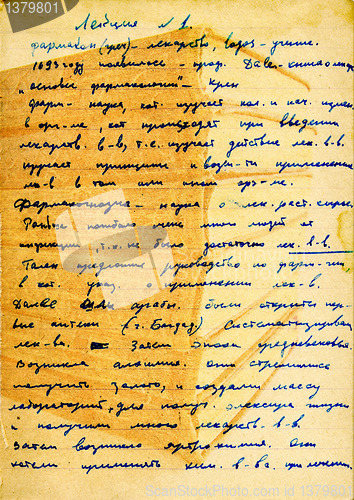 Лекция № 1.
фармакон (греч) – лекарство, логос – учение.
1693 году появилась – проф. Дале – книга
„основы фармакологии" –
фарм – наука, кот. изучает кол. и кач. измен.
в орг-ме, кот происходят при введении
лекарств. в-в, т.е. изучает действие лек. в-в.
изучает принципы и возм-ти применения
в том или ином орг-ме.
Фармакогнозия – наука о лек. раст. сырье.
Раньше погибало очень много людей от
инфекции, т.к. не было достаточно лек. в-в.
Гален предложил руководство по фарм-гии
в кот. указ. о применении лек-в.
Далее арабы. были открыты пер-
вые аптеки (г. Багдад) Систематизировали
лек-ва. Затем эпоха средневековья.
Возникла алхимия. Они стремились
получить золото, и создали массу
лабораторий, для получ. элексира жизни
и получили много лекарств. в-в.
Затем возникло ятрохимия. Они
хотели применять хим. в-ва при лечении.